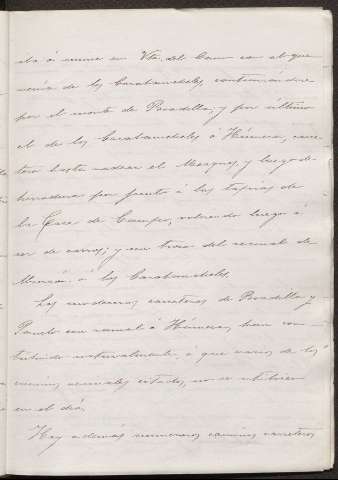 iba á unirse en Vta. del Cano con el que
venía de los Carabancheles, continuándose
por el monte de Boadilla, y por último
el de los Carabancheles á Húmera, carre-
tero hasta rodear el Mosques, y luego de
herradura por junto á las tapias de
la Casa de Campo, volviendo luego á
ser de carros; y un trozo del ramal de
Alcorcón á los Carabancheles.
Las modernas carreteras de Boadilla y
Pozuelo con ramal á Húmera, han con-
tribuido naturalmente á que varios de los
caminos vecinales citados, no se utilicen
en el día.
Hay además numerosos caminos carreteros